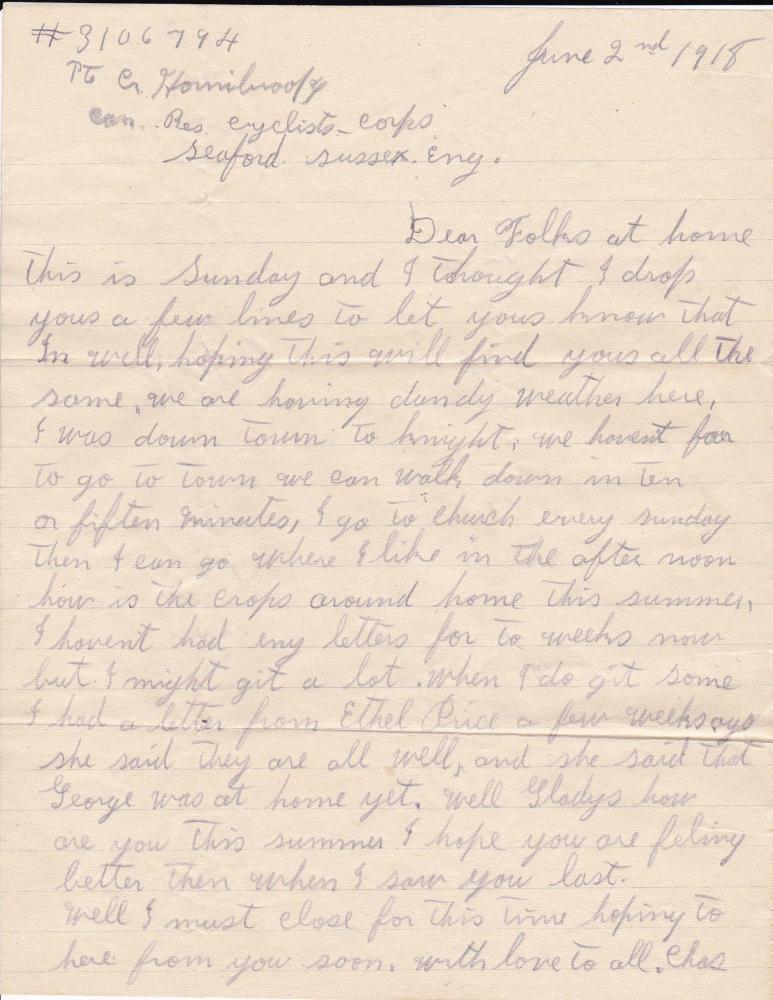 # 3106794
June 2nd 1918
Pte C. Hornibrook
Can. Res. cyclists corps
Seaford. Sussex. Eng.
Dear Folks at home
this is Sunday and I thought I drop
yous a few lines to let yous know that
Im well, hoping this will find yous all the
same, we are having dandy weather here,
I was down town to knight, we havent far
to go to town we can walk down in ten
or fiften minutes, I go to church every sunday
then I can go where I like in the after noon
how is the crops around home this summer,
I havent had eny letters for to weeks now
but I might git a lot. when I do git some
I had a letter from Ethel Price a few weeks ago
she said they are all well, and she said that
George was at home yet. well Gladys how
are you this summer I hope you are feling
better then when I saw you last.
well I must close for this time hoping to
here from you soon. with love to all. Chas